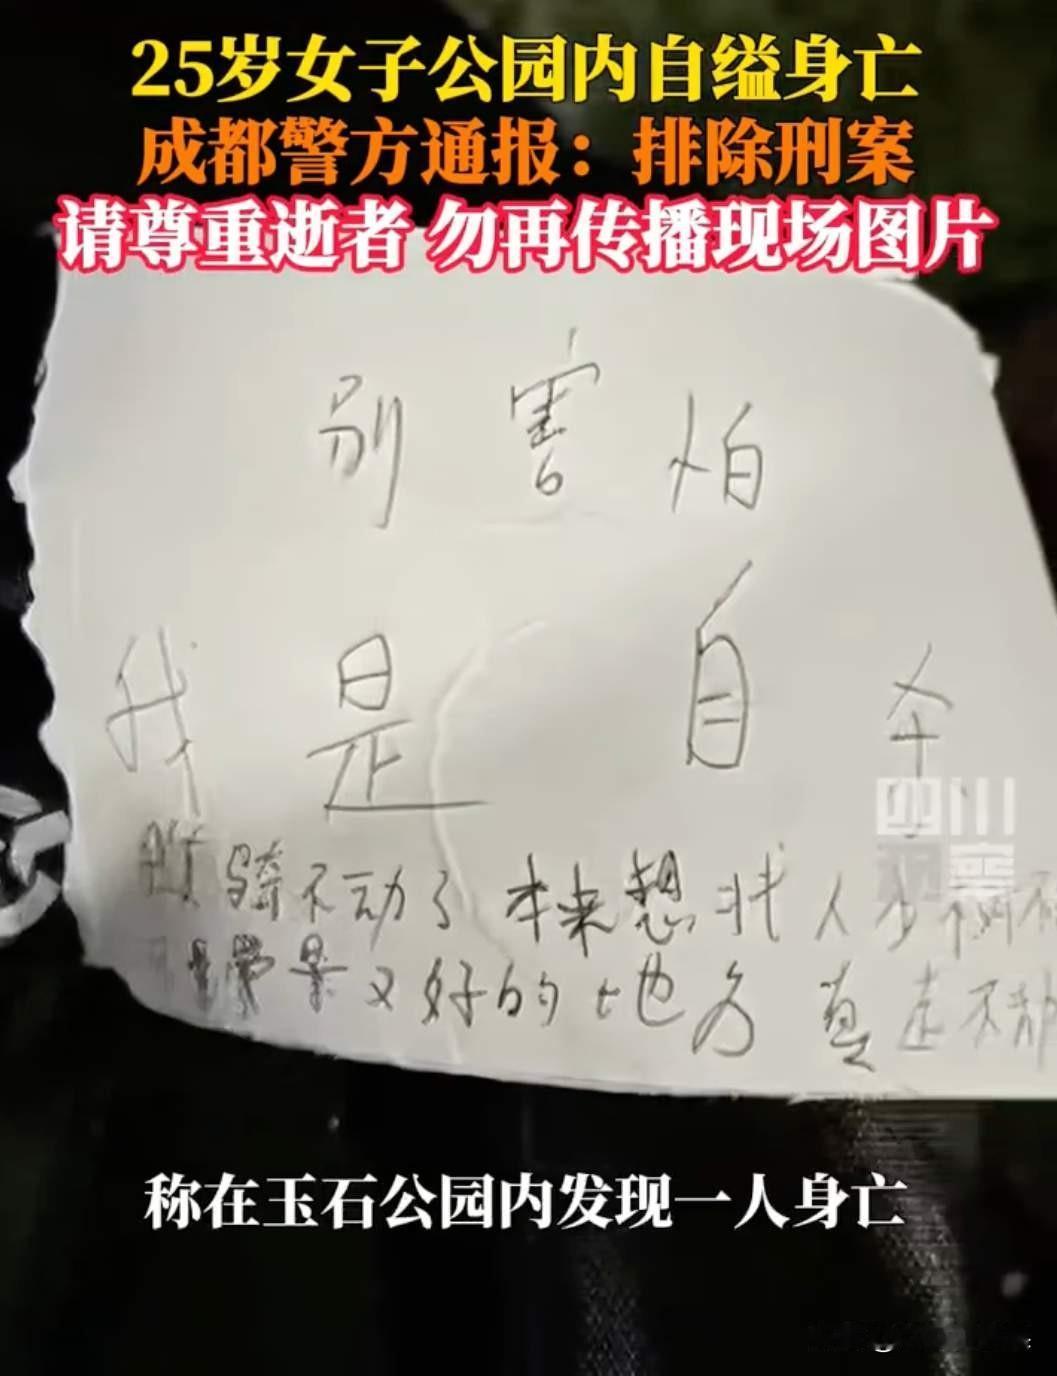 25岁女子公园内自缢身亡
成都警方通报：排除刑案
请尊重逝者 勿再传播现场图片
别害怕
我是自杀
骑不动了 本来想找人少
又好的地方 真走不动
四川观察
称在玉石公园内发现一人身亡